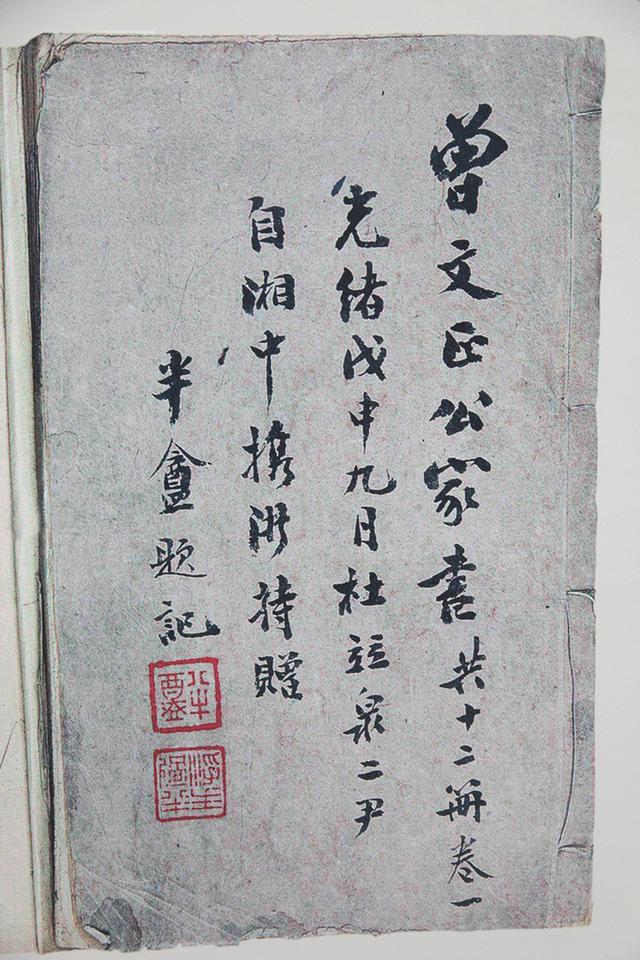 曾文正公家書 共十二冊卷一
光緒戊申九月杜竝泉二尹
自湘中携浙持贈
半盦題記